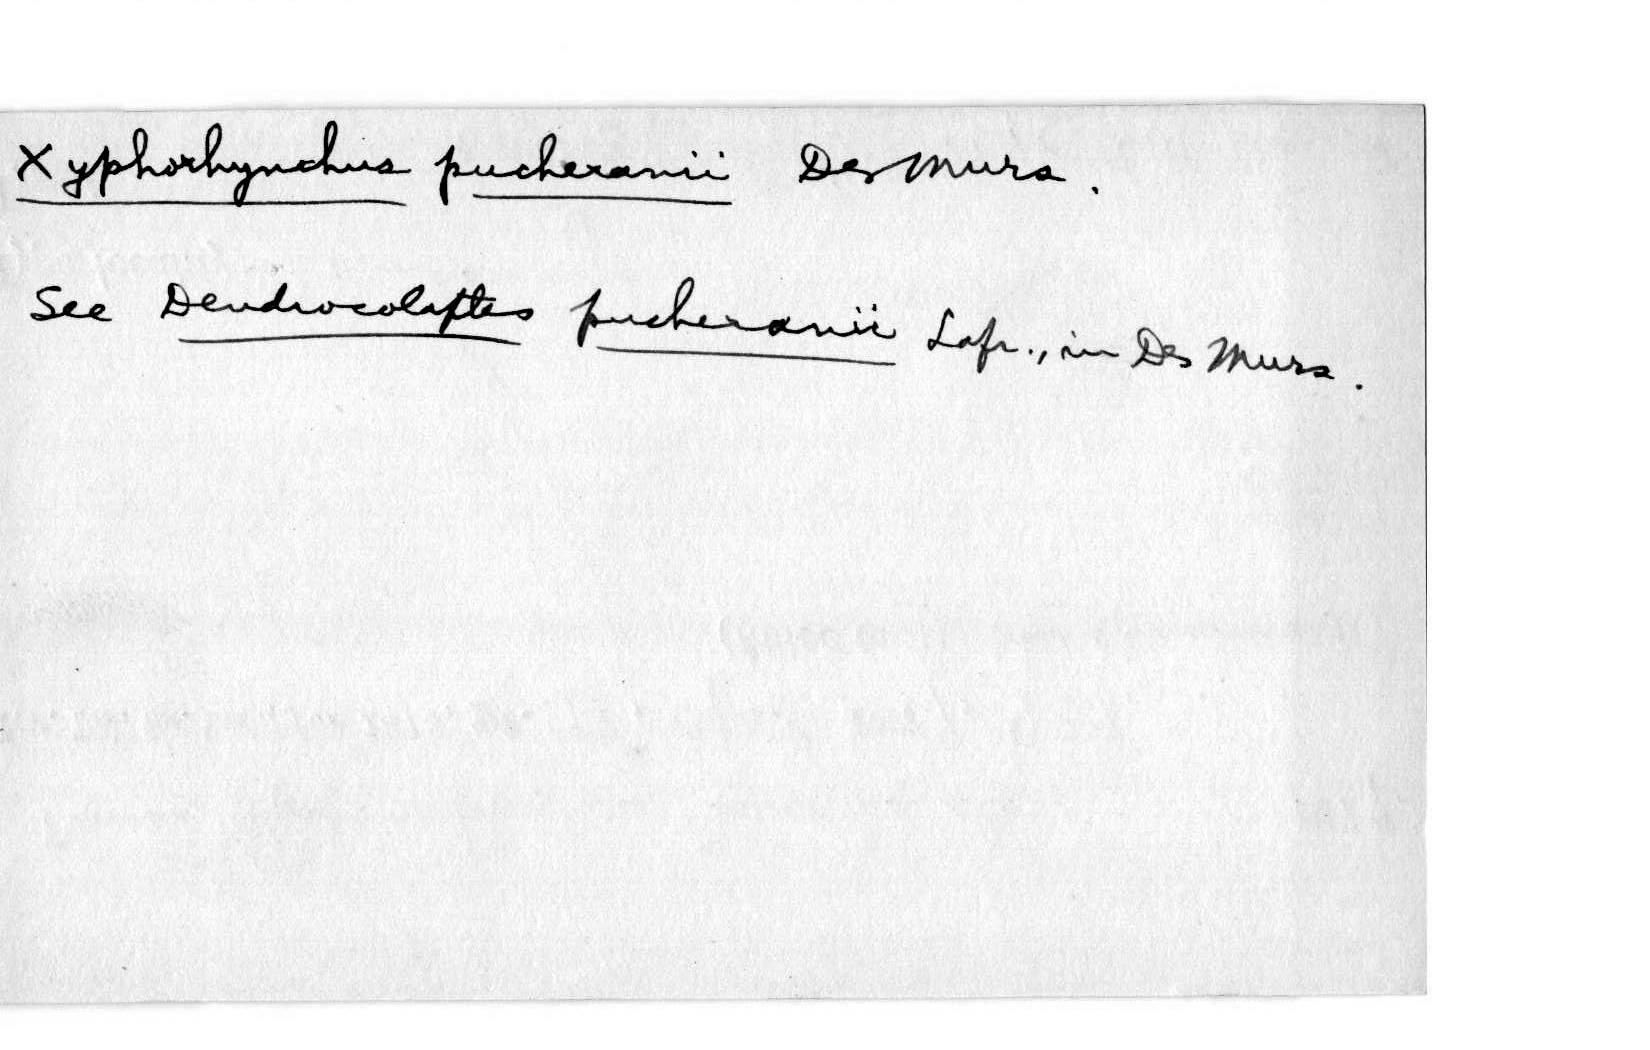 Xyphorhynchus pucheranii Des Murs.
See Dendrocolaptes pucheranii Lafr., in Des Murs.